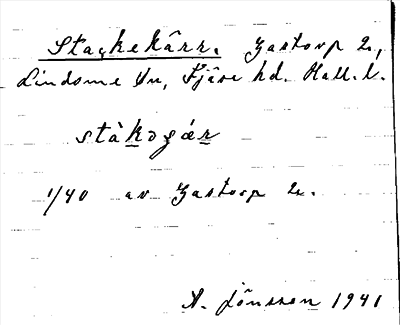 Stackekärr. Gastorp 2,
Lindome sn, Fjäre hd. Hall. l.
stàkəgár
1/40 av Gastorp 2.
A. Jönsson 1941